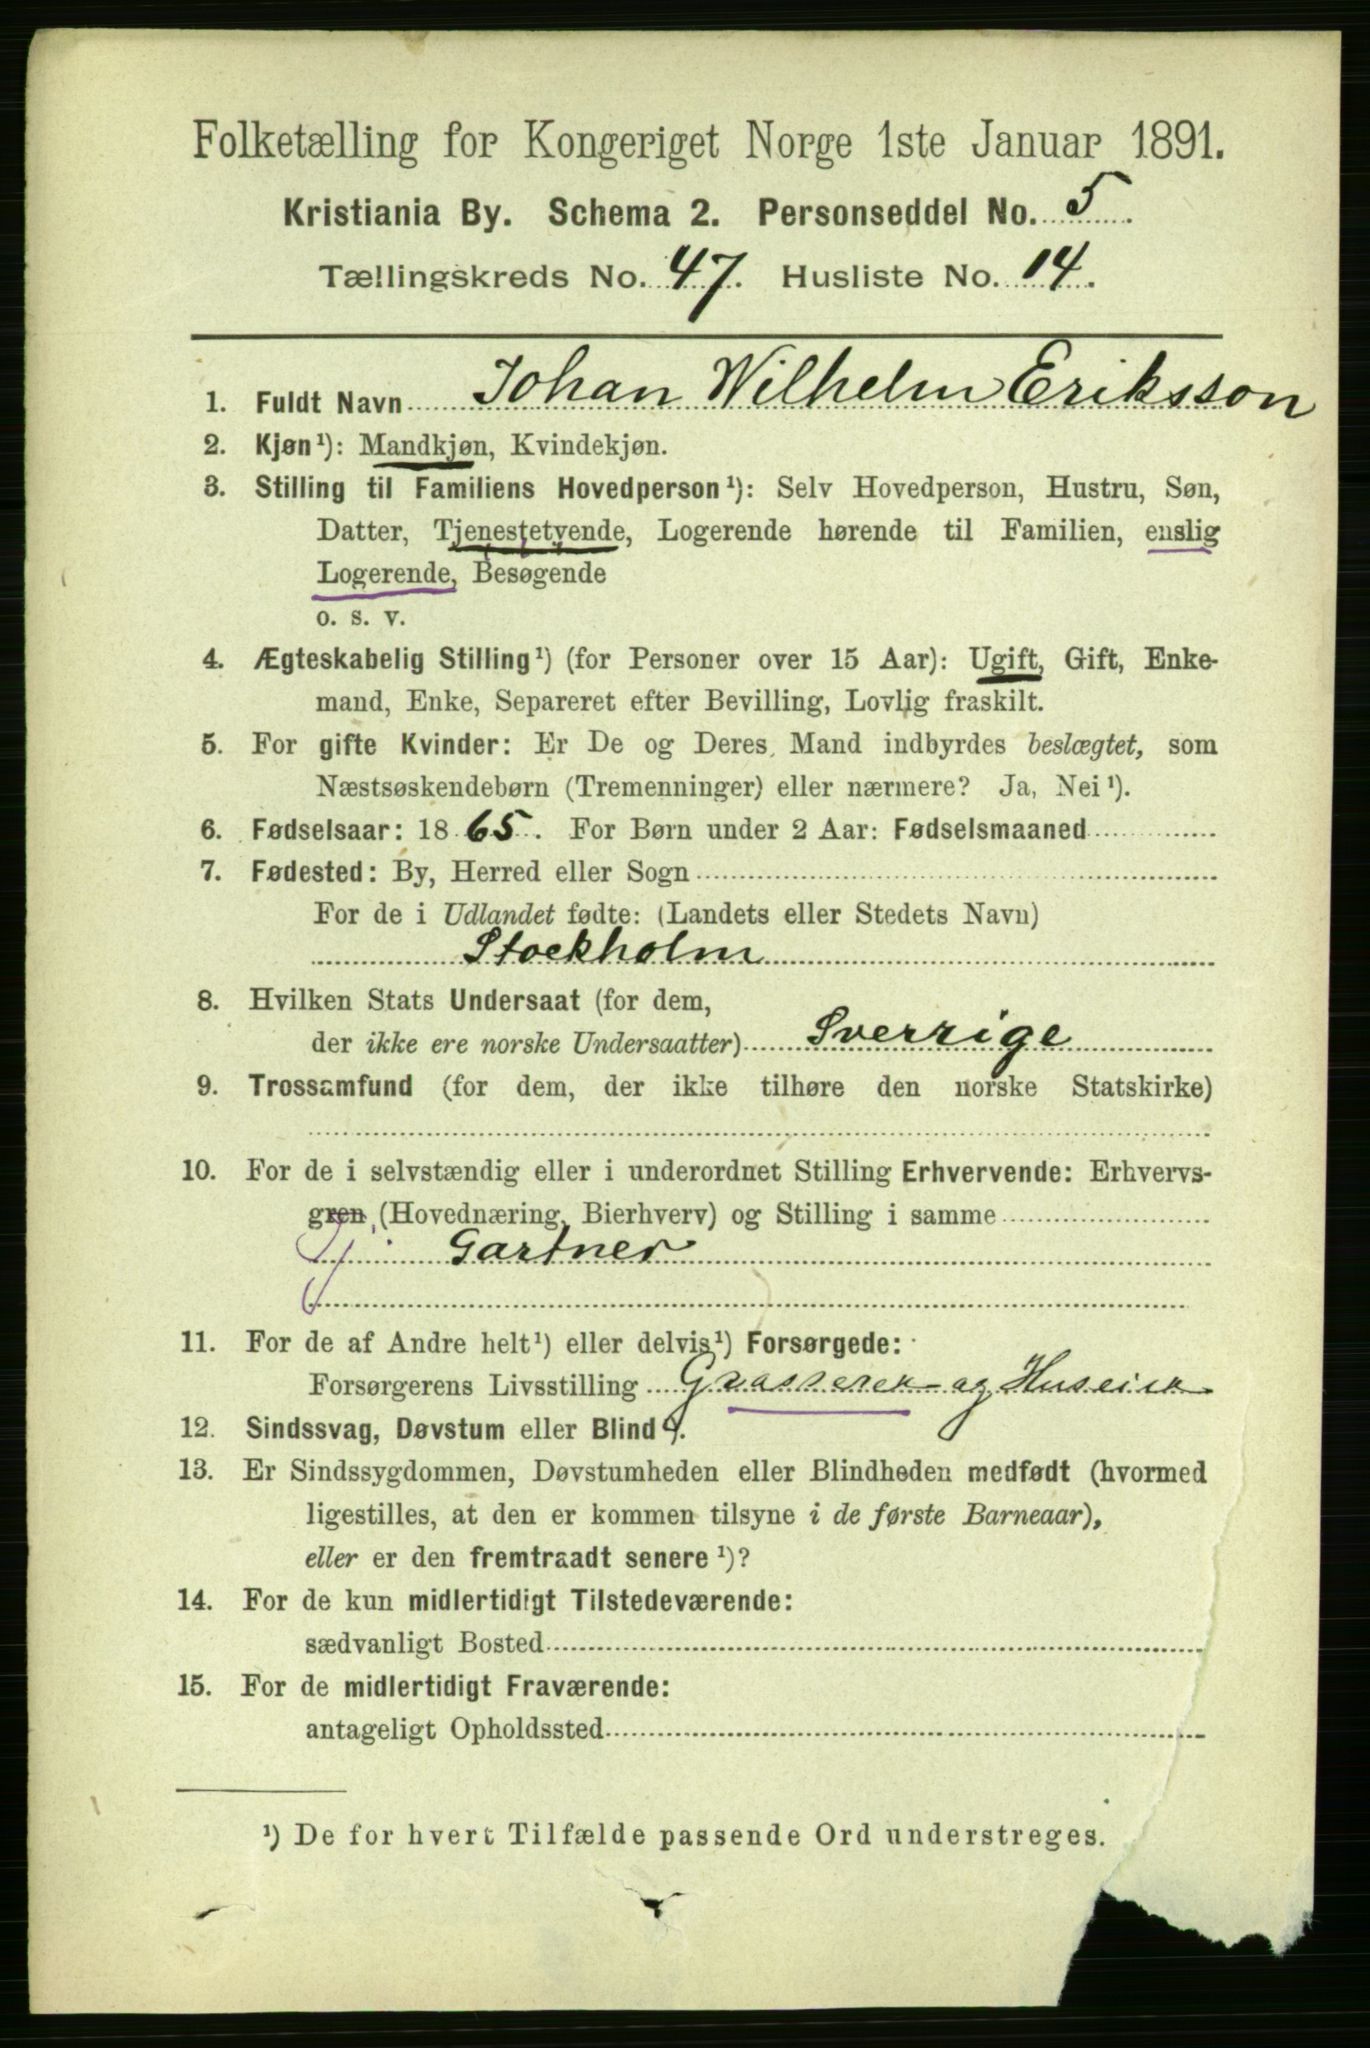 Folketælling for Kongeriget Norge 1ste Januar 1891.
Kristiania By. Schema 2. Personseddel No. 5.
Tællingskreds No. 47. Husliste No. 14.
1. Fuldt Navn Johan Wilhelm Eriksson
2. Kjøn¹): Mandkjøn, Kvindekjøn.
3. Stilling til Familiens Hovedperson¹): Selv Hovedperson, Hustru, Søn,
Datter, Tjenestetyende, Logerende hørende til Familien, enslig
Logerende, Besøgende
o. s. v.
4. Ægteskabelig Stilling¹) (for Personer over 15 Aar): Ugift, Gift, Enke-
mand, Enke, Separeret efter Bevilling, Lovlig fraskilt.
5. For gifte Kvinder: Er De og Deres Mand indbyrdes beslægtet, som
Næstsøskendebørn (Tremenninger) eller nærmere? Ja, Nei¹).
6. Fødselsaar: 1865. For Børn under 2 Aar: Fødselsmaaned
7. Fødested: By, Herred eller Sogn
For de i Udlandet fødte: (Landets eller Stedets Navn)
Stockholm
8. Hvilken Stats Undersaat (for dem,
der ikke ere norske Undersaatter) Sverrige
9. Trossamfund (for dem, der ikke tilhøre den norske Statskirke)
10. For de i selvstændig eller i underordnet Stilling Erhvervende: Erhvervs-
gren (Hovednæring, Bierhverv) og Stilling i samme
Gartner
11. For de af Andre helt¹) eller delvis¹) Forsørgede:
Forsørgerens Livsstilling og
12. Sindssvag, Døvstum eller Blind
13. Er Sindssygdommen, Døvstumheden eller Blindheden medfødt (hvormed
ligestilles, at den er kommen tilsyne i de første Barneaar),
eller er den fremtraadt senere¹)?
14. For de kun midlertidigt Tilstedeværende:
sædvanligt Bosted
15. For de midlertidigt Fraværende:
antageligt Opholdssted
¹) De for hvert Tilfælde passende Ord understreges.